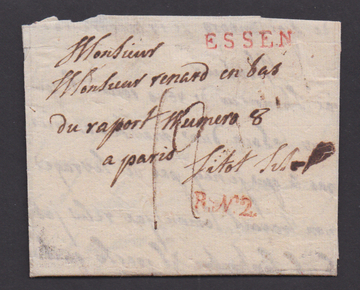 ESSEN
Monsieur
Monsieur renard en bas
du raport Numero 8
a paris
R.N°2